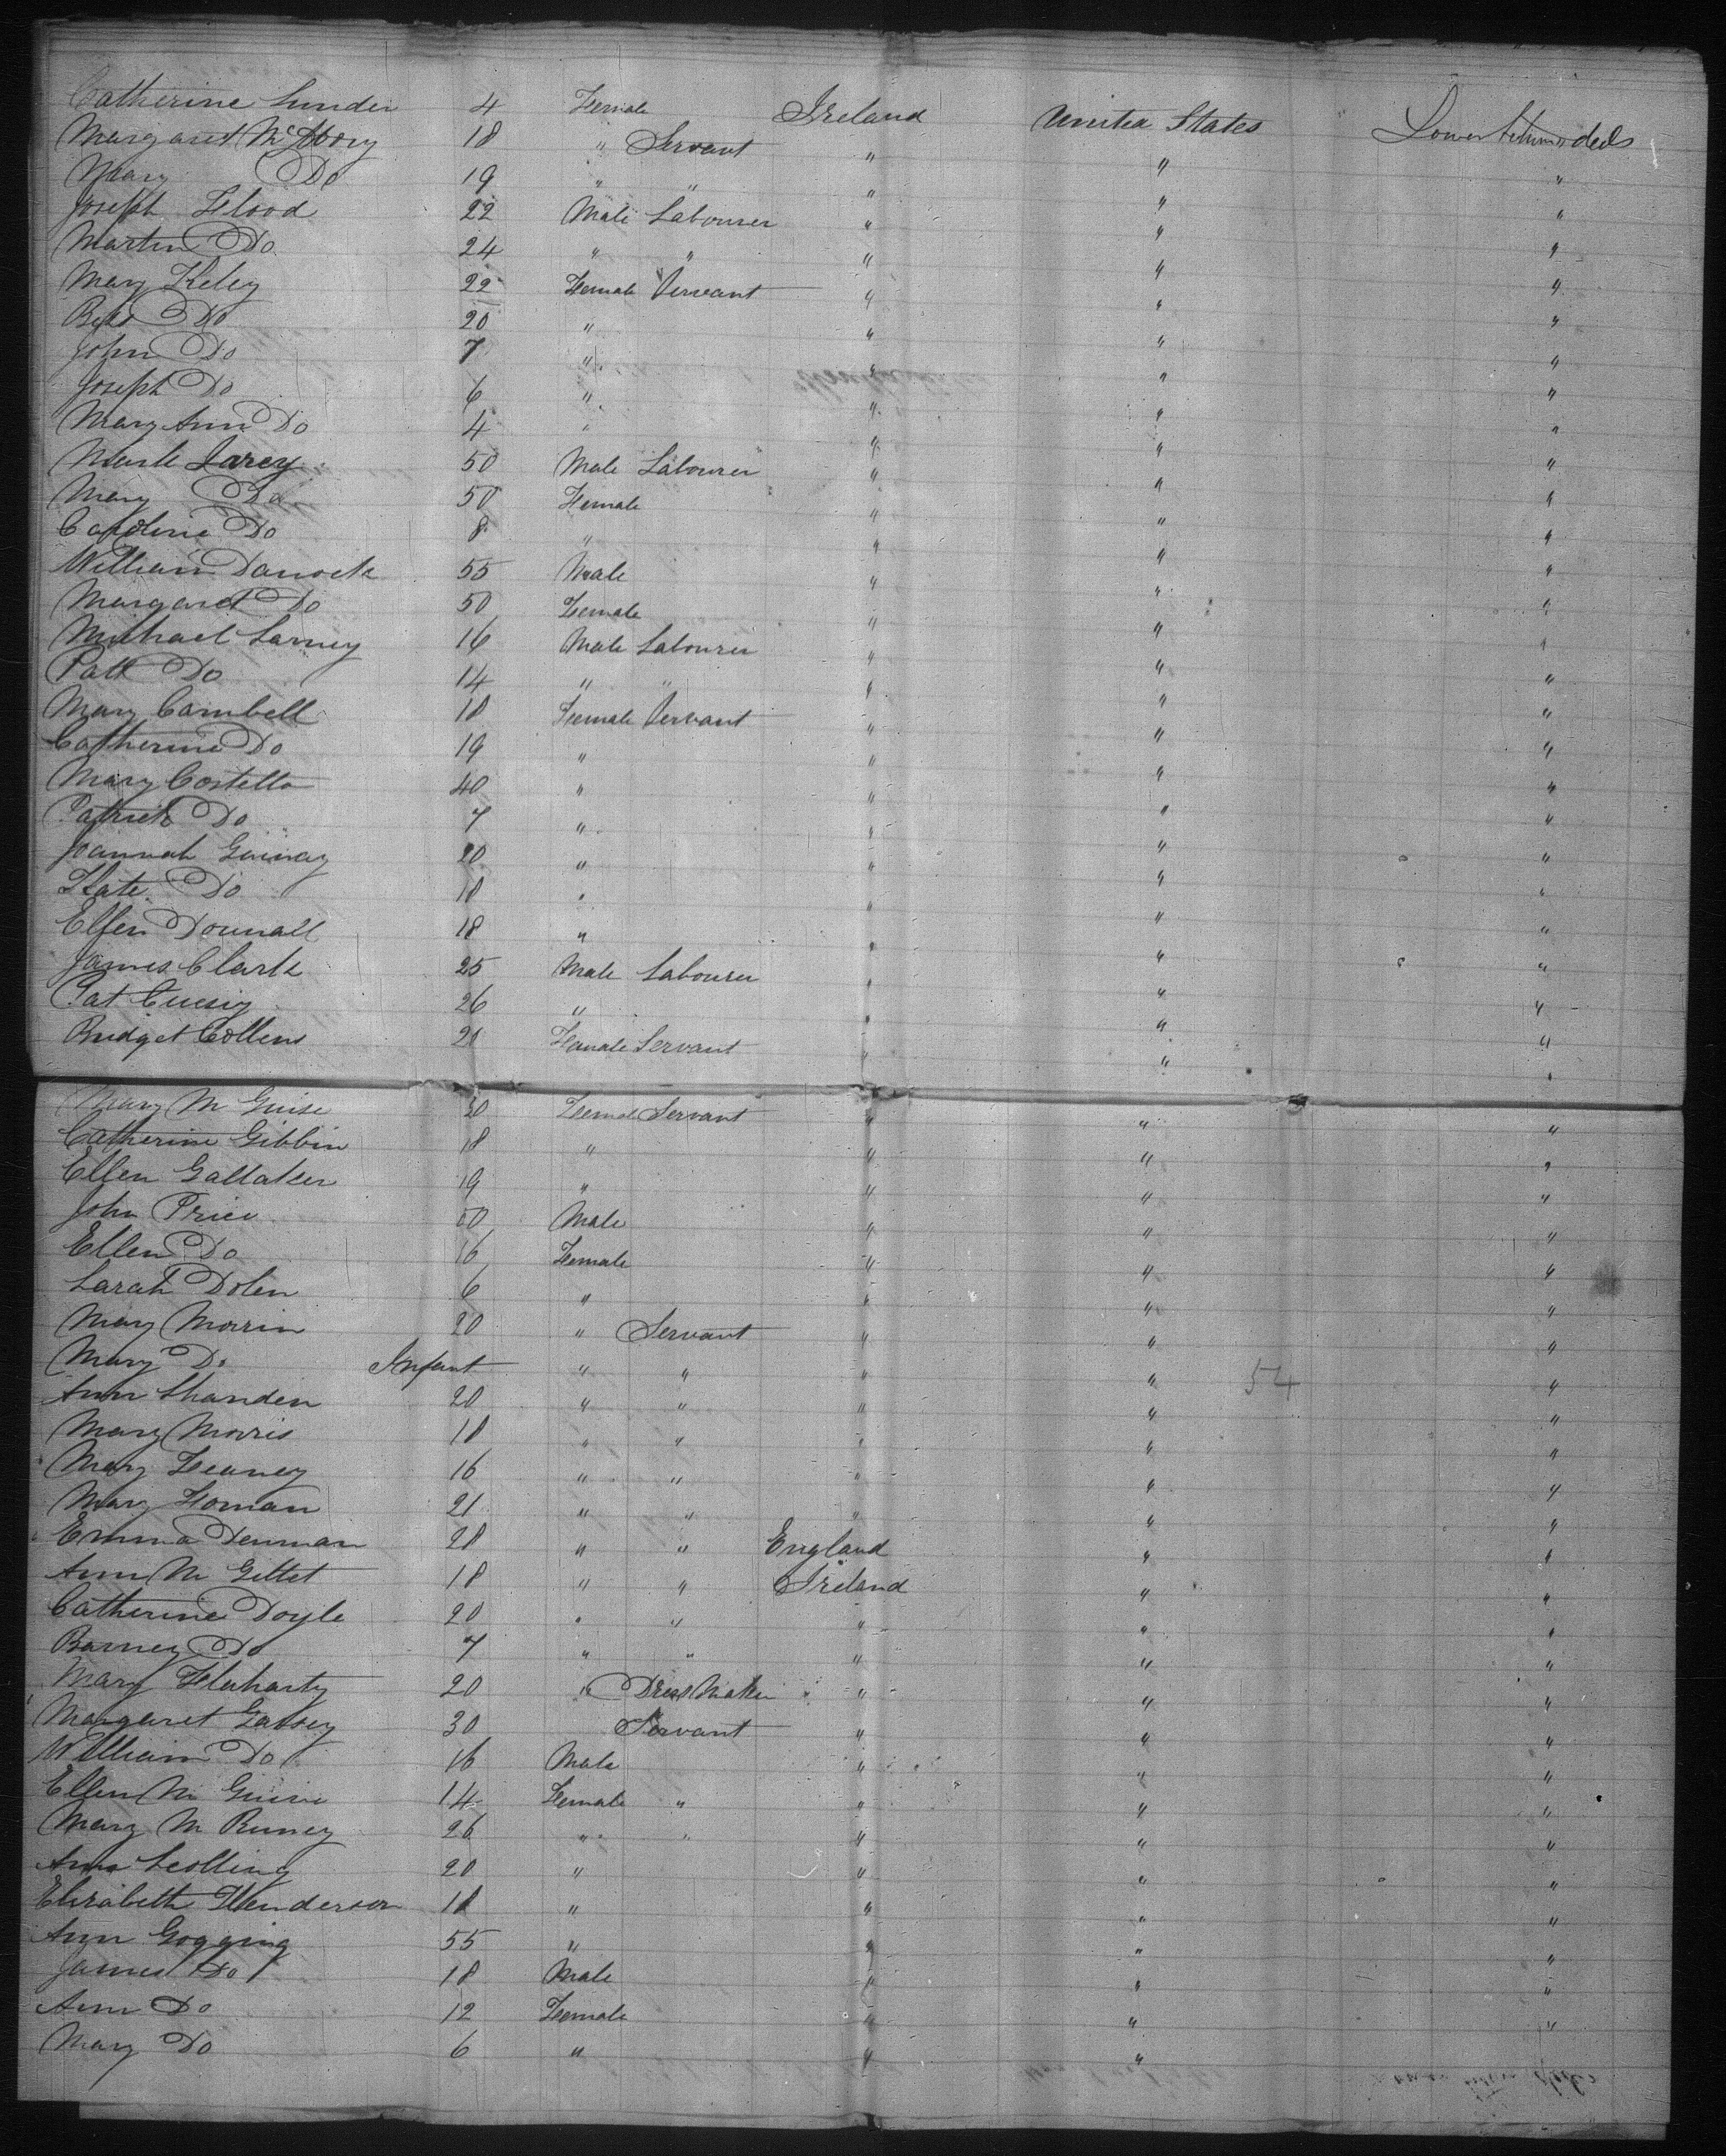 Catherine Lunden 4 Female Ireland United States Lower between decks
Margaret McAvory 18 " Servant " " "
Mary Do 19 " " " " "
Joseph Flood 22 Male Labourer " " "
Martin Do 24 " " " " "
Mary Keley 22 Female Servant " " "
Do 20 " " " "
John Do 7 " " " "
Joseph Do 6 " " " "
Mary Ann Do 4 " " " "
Mark 50 Male Labourer " " "
Mary Do 50 Female " " "
Caroline Do 8 " " " "
William 55 Male " " "
Margaret Do 50 Female " " "
Michael Larney 16 Male Labourer " " "
Patt Do 14 " " " " "
Mary Cambell 18 Female Servant " " "
Catherine Do 19 " " " "
Mary Costello 40 " " " "
Patrick Do 7 " " " "
Joannah 20 " " " "
Kate Do 18 " " " "
Ellen Dounall 18 " " " "
James Clark 25 Male Labourer " " "
Pat 26 " " " "
Bridget Collens 21 Female Servant " " "
Mary M Guise 20 Female Servant " " "
Catherine Gibbin 18 " " " "
Ellen Gallaker 19 " " " "
John Price Male " " "
Ellen Do 16 Female " " "
Sarah Dolen 6 " " " "
Mary Morrin 20 " Servant " " "
Mary Do Infant " " " " 54 "
Ann Shanden 20 " " " " "
Mary Morris 18 " " " " "
Mary Feaney 16 " " " " "
Mary Homan 21 " " " " "
Emma Denman 28 " " England " "
Ann M Gettet 18 " " Ireland " "
Catherine Doyle 20 " " " " "
Barney Do 7 " " " " "
Mary Flaharty 20 " Dress Maker " " "
Margaret 30 Servant " " "
William Do 16 Male " " "
Ellen M Guire 14 Female " " " "
Mary M Runey 26 " " " " "
Ann 20 " " " "
Elizabeth Henderson 18 " " " "
Ann Gogging 55 " " " "
James Do 18 Male " " "
Ann Do 12 Female " " "
Mary Do 6 " " "